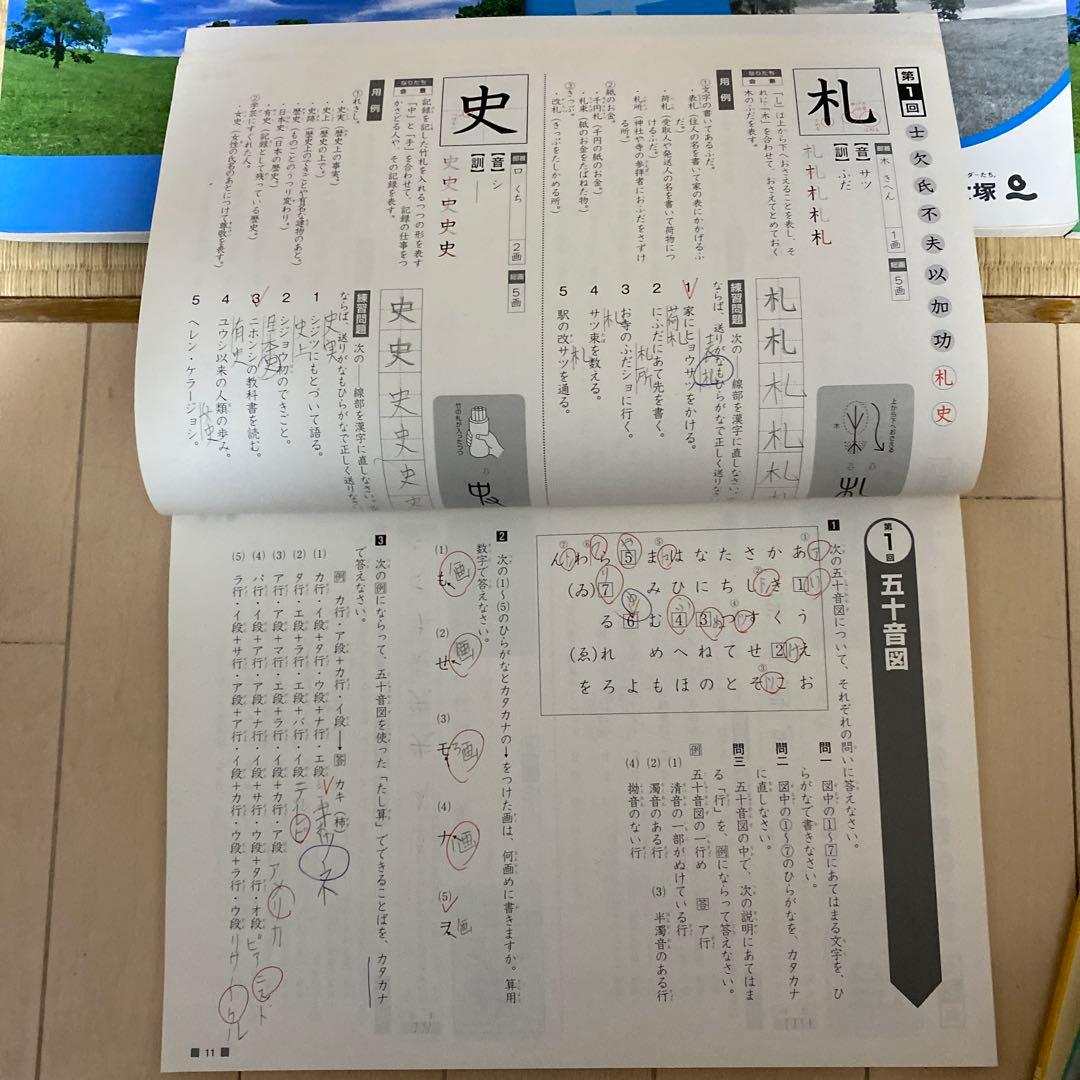 第1回
士 欠 氏 不 夫 以 加 功 札 史
札
部首 木 きへん 1画
総画 5画
【音】サツ
【訓】ふだ
札 札 札 札 札
なりたち 会意
「乚」は上から下へおさえることを表し、それに「木」を合わせて、おさえてとめておく木のふだを表す。
用例
①文字の書いてあるふだ。
・表札(住人の名を書いて家の表にかかげるふだ。)
・荷札(受取人や発送人の名を書いて荷物につけるふだ。)
・札所(神社や寺の参拝者におふだをさずける所。)
②紙のお金。
・千円札(千円の紙のお金。)
・札束(紙のお金をたばねた物。)
③きっぷ。
・改札(きっぷをたしかめる所。)
札 札 札 札 札
上から下へおさえる
木
練習問題 次の―線部を漢字に直しなさい。
ならば、送りがなもひらがなで正しく送りなさ
1 家にヒョウサツをかける。
2 にふだにあて先を書く。
荷札
3 お寺のふだショに行く。
札所
4 サツ束を数える。
札
5 駅の改サツを通る。
札
史
部首 口 くち 2画
総画 5画
【音】シ
【訓】―
史 史 史 史 史
なりたち 会意
記録を記した竹札を入れるつつの形を表す「中」と「手」を合わせて、記録の仕事をつかさどる人や、その記録を表す。
用例
①れきし。
・史実(歴史上の事実。)
・史上(歴史の上で。)
・史跡(歴史上のできごとや有名な建物のあと。)
・歴史(ものごとのうつり変わり。)
・日本史(日本の歴史。)
・有史(記録として残っている歴史。)
②学芸にすぐれた人。
・女史(女性の氏名のあとにつけて尊敬を表す。)
史 史 史 史 史
竹の札が入ったつつ
練習問題 次の―線部を漢字に直しなさい。
ならば、送りがなもひらがなで正しく送りなさ
1 シジツにもとづいて語る。
史実
2 シジョウ初のできごと。
史上
3 ニホンシの教科書を読む。
日本史
4 ユウシ以来の人類の歩み。
有史
5 ヘレン・ケラージョシ。
女史
第1回 五十音図
1 次の五十音図について、それぞれの問いに答えなさい。
あ か さ た な は ま 5 ら わ ん
1 き し ち に ひ み 7 (ゐ)
う く す つ 3 4 む 6 る
え 2 せ て ね へ め れ (ゑ)
お こ そ と の ほ も よ ろ を
問一 図中の1〜7にあてはまる文字を、ひらがなで書きなさい。
問二 図中の①〜⑦のひらがなを、カタカナに直しなさい。
問三 五十音図の中で、次の説明にあてはまる「行」を、例にならって答えなさい。
例 五十音図の一行め 答 ア行
(1) 清音の一部がぬけている行
(2) 濁音のある行
(3) 半濁音のある行
(4) 拗音のない行
2 次の(1)〜(5)のひらがなとカタカナの→をつけた画は、何画めに書きますか。算用数字で答えなさい。
(1) も 画
(2) せ 画
(3) モ 画
(4) ナ 画
(5) ヲ 画
3 次の例にならって、五十音図を使った「たし算」でできることばを、カタカナで答えなさい。
例 カ行・ア段+カ行・イ段→答 カキ(柿)
(1) カ行・イ段+タ行・ウ段+ナ行・エ段
(2) タ行・エ段+ラ行・エ段+バ行・イ段 テレビ
(3) ア行・ア段+マ行・エ段+ラ行・イ段+カ行・ア段 アメリカ
(4) パ行・イ段+ア行・ア段+ナ行・イ段+サ行・ウ段+タ行・オ段
(5) ラ行・イ段+サ行・ア段+ア行・イ段+カ行・ウ段+ラ行・ウ段
11